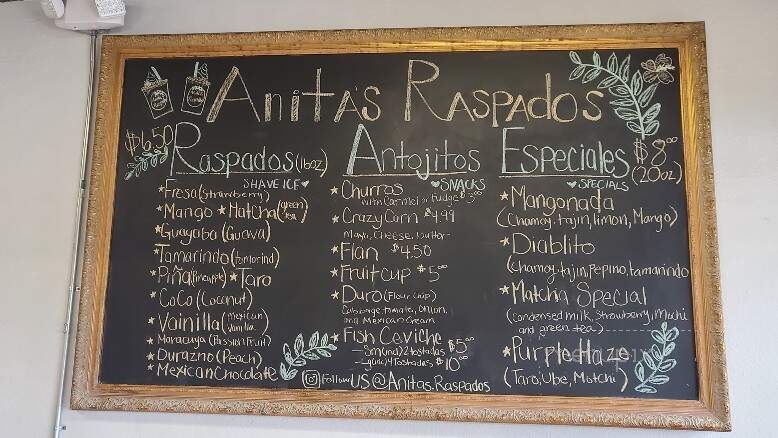 Anita's Raspados
$6.50
Raspados (16oz)
SHAVE ICE
* Fresa (Strawberry)
* Mango * Hatcha (green tea)
* Guayaba (Guava)
* Tamarindo (Tamarind)
* Piña (Pineapple) * Taro
* CoCo (Coconut)
* Vainilla (Mexican Vanilla)
* Maracuya (Passion Fruit)
* Durazno (Peach)
* Mexican Chocolate
Antojitos
SNACKS
* Churros
with Carmel or Fudge $3.00
* Crazy Corn $4.99
Mayo, Cheese, butter
* Flan $4.50
* Fruit Cup $5.00
* Duro (Flour chip)
Cabbage, tomato, onion,
and Mexican Cream
* Fish Ceviche
Sm(und) 2 tostadas $5.00
4 Tostadas $10.00
Follow US @Anitas.Raspados
Especiales $8.00
(20oz)
SPECIALS
* Mangonada
(Chamoy, tajin, limon, Mango)
* Diablito
(Chamoy, tajin, Pepino, tamarindo
* Matcha Special
(Condensed milk, Strawberry, Mochi
and green tea)
* Purple Haze
(Taro, Ube, Motchi)